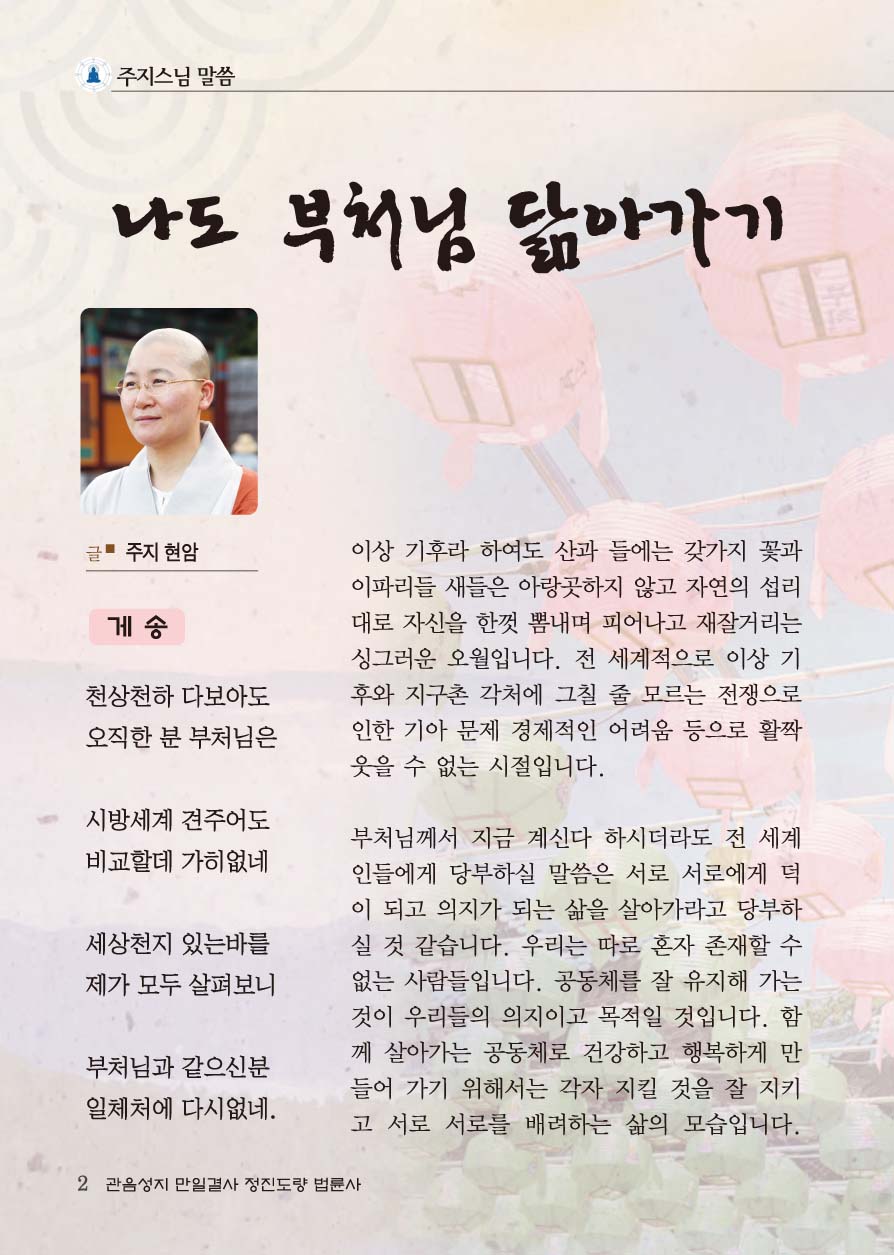 주지스님 말씀
나도 부처님 닮아가기
글■ 주지 현암
게 송
천상천하 다보아도
오직한 분 부처님은
시방세계 견주어도
비교할데 가히없네
세상천지 있는바를
제가 모두 살펴보니
부처님과 같으신분
일체처에 다시없네.
이상 기후라 하여도 산과 들에는 갖가지 꽃과
이파리들 새들은 아랑곳하지 않고 자연의 섭리
대로 자신을 한껏 뽐내며 피어나고 재잘거리는
싱그러운 오월입니다. 전 세계적으로 이상 기
후와 지구촌 각처에 그칠 줄 모르는 전쟁으로
인한 기아 문제 경제적인 어려움 등으로 활짝
웃을 수 없는 시절입니다.
부처님께서 지금 계신다 하시더라도 전 세계
인들에게 당부하실 말씀은 서로 서로에게 덕
이 되고 의지가 되는 삶을 살아가라고 당부하
실 것 같습니다. 우리는 따로 혼자 존재할 수
없는 사람들입니다. 공동체를 잘 유지해 가는
것이 우리들의 의지이고 목적일 것입니다. 함
께 살아가는 공동체로 건강하고 행복하게 만
들어 가기 위해서는 각자 지킬 것을 잘 지키
고 서로 서로를 배려하는 삶의 모습입니다.
2 관음성지 만일결사 정진도량 법륜사